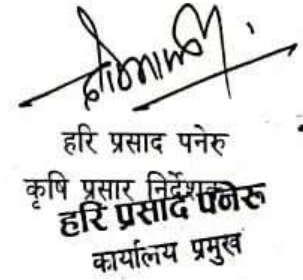 हरि प्रसाद पनेरु
कृषि प्रसार निर्देशक
हरि प्रसाद पनेरू
कार्यालय प्रमुख